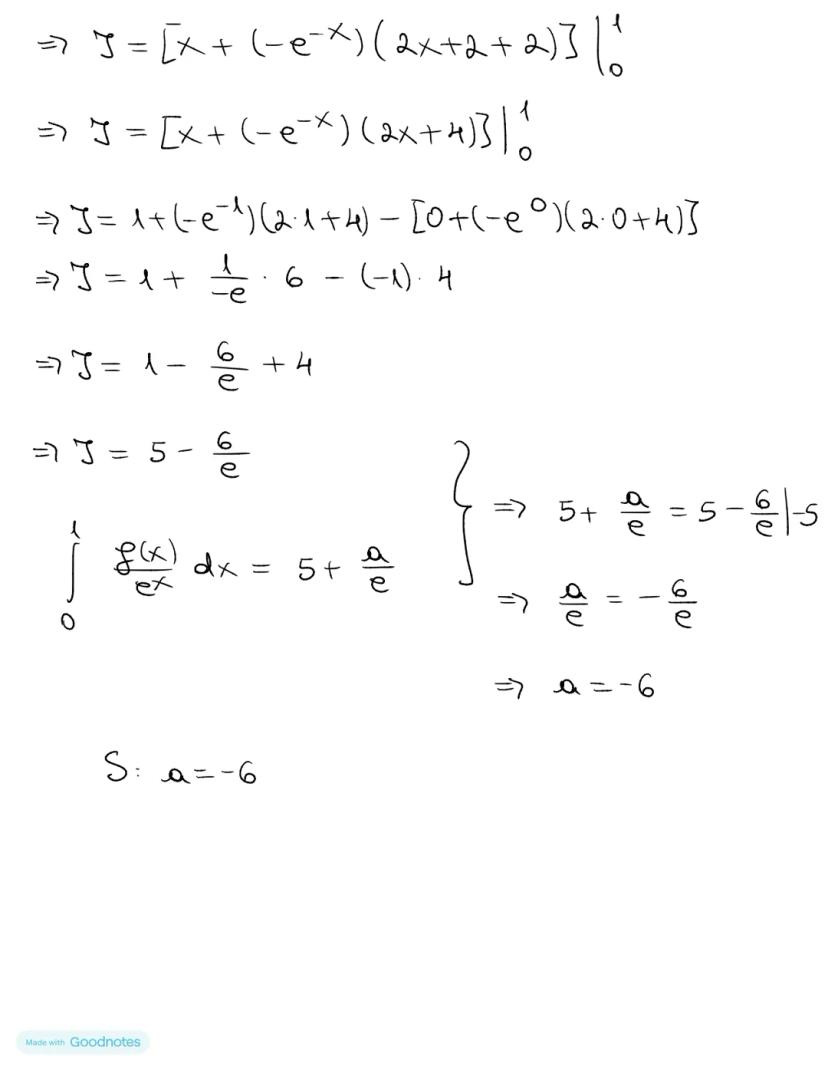 => I = [x + (-e^{-x})(2x+2+2)]|_0^1
=> I = [x + (-e^{-x})(2x+4)]|_0^1
=> I = 1+(-e^{-1})(2·1+4) - [0+(-e^0)(2·0+4)]
=> I = 1 + \frac{1}{-e} · 6 - (-1) · 4
=> I = 1 - \frac{6}{e} + 4
=> I = 5 - \frac{6}{e}
\int_0^1 \frac{f(x)}{e^x} dx = 5 + \frac{a}{e}
} => 5 + \frac{a}{e} = 5 - \frac{6}{e} |-5
=> \frac{a}{e} = - \frac{6}{e}
=> a = -6
S: a = -6
Made with Goodnotes